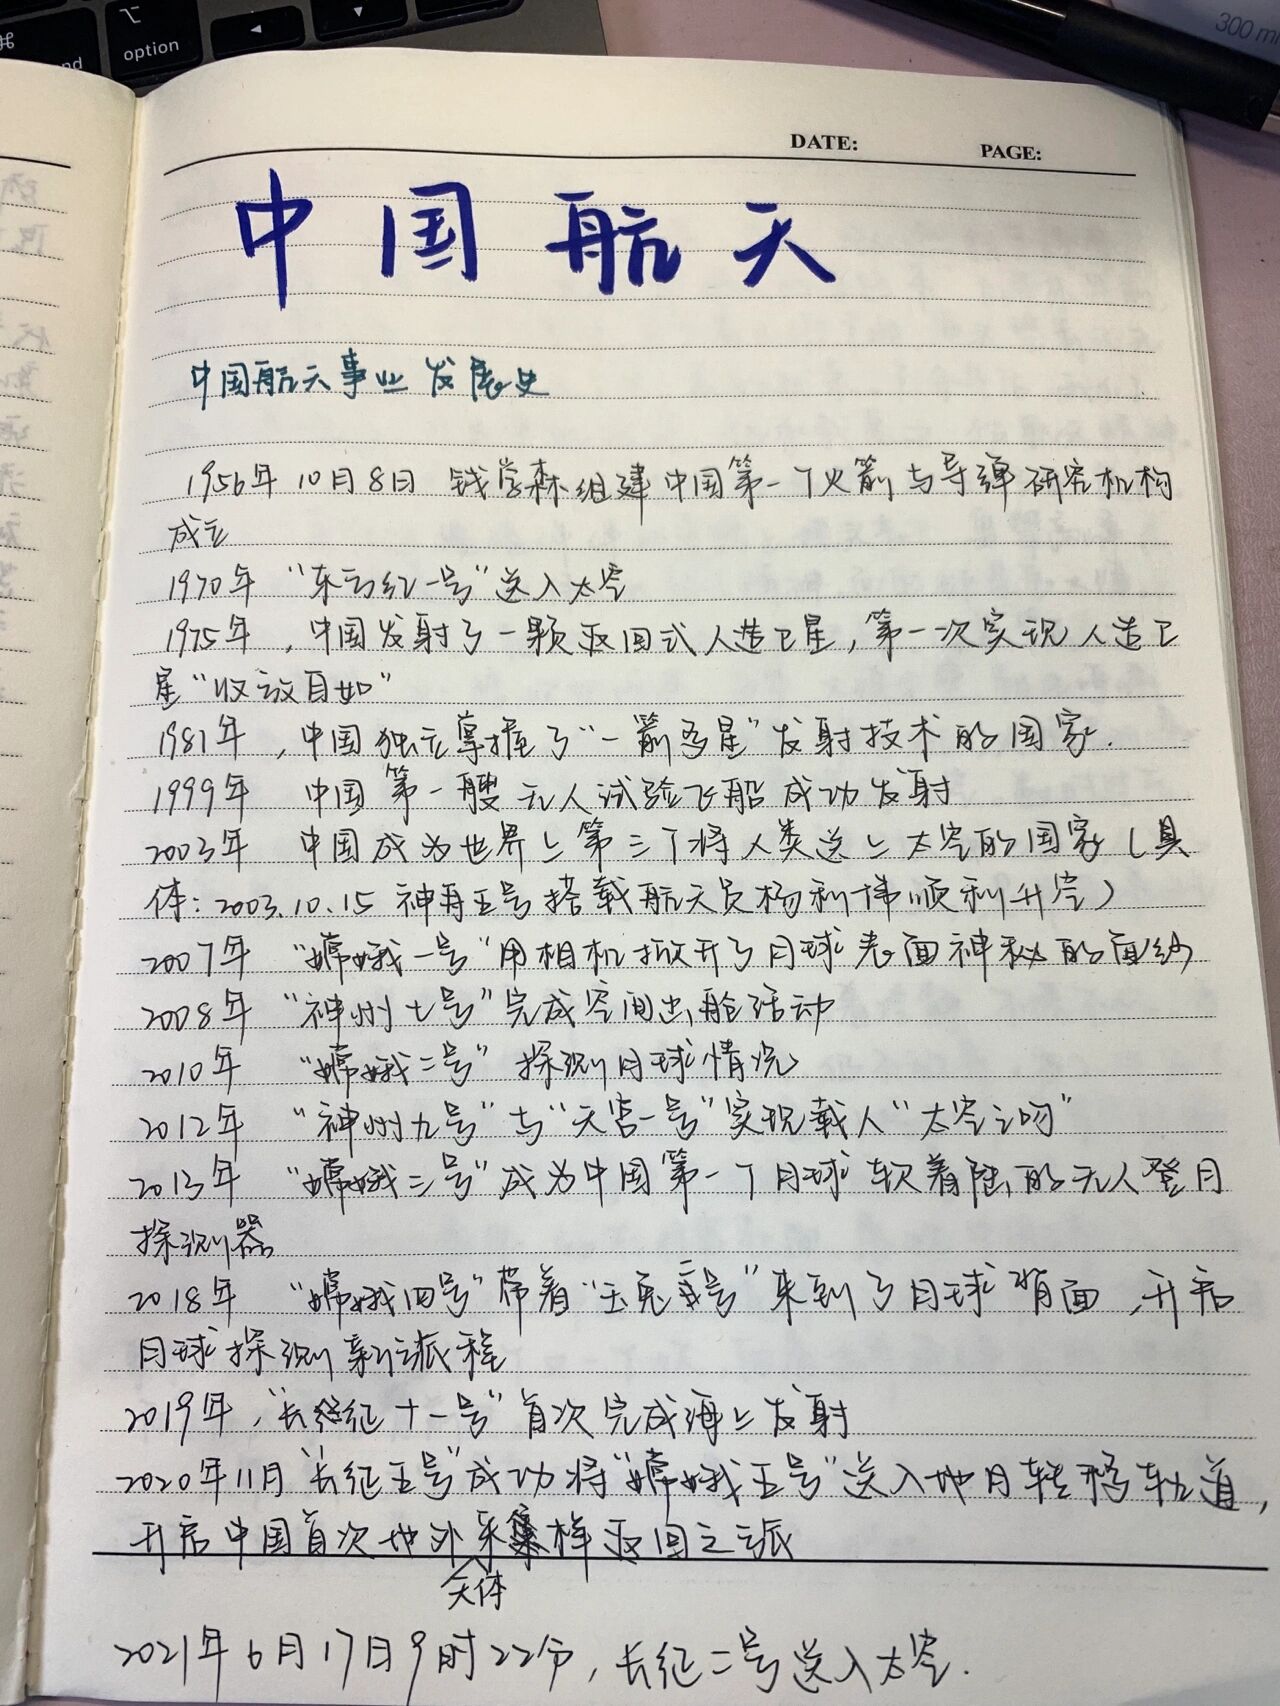 ⌘
⌥
option
◀
300 ml
DATE:
PAGE:
中国航天
中国航天事业发展史
1956年10月8日 钱学森组建中国第一个火箭与导弹研究机构
成立
1970年 “东方红一号”送入太空
1975年，中国发射了一颗返回式人造卫星，第一次实现人造卫
星“收放自如”
1981年，中国独立掌握了“一箭多星”发射技术的国家.
1999年 中国第一艘无人试验飞船成功发射
2003年 中国成为世界上第三个将人类送上太空的国家（具
体：2003.10.15 神舟五号搭载航天员杨利伟顺利升空）
2007年 “嫦娥一号”用相机掀开了月球表面神秘的面纱
2008年 “神州七号”完成空间出舱活动
2010年 “嫦娥二号”探测月球情况
2012年 “神州九号”与“天宫一号”实现载人“太空之吻”
2013年 “嫦娥三号”成为中国第一个月球软着陆的无人登月
探测器
2018年 “嫦娥四号”带着“玉兔二号”来到了月球背面，开启
月球探测新旅程
2019年，“长征十一号”首次完成海上发射
2020年11月“长征五号”成功将“嫦娥五号”送入地月转移轨道，
开启中国首次地外天体采样返回之旅
2021年6月17日9时22分，长征二号送入太空.